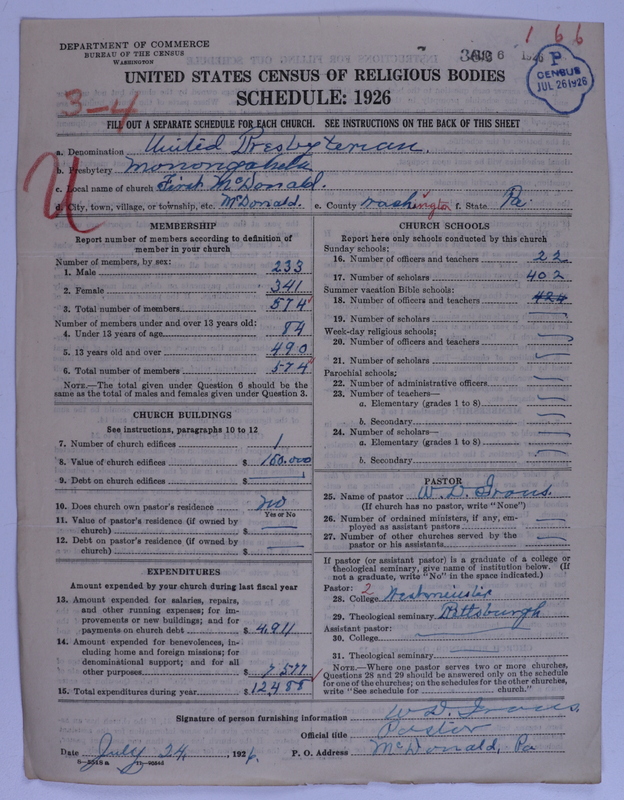 DEPARTMENT OF COMMERCE
BUREAU OF THE CENSUS
WASHINGTON
1 6 6
P
CENSUS
JUL 26 1926
UNITED STATES CENSUS OF RELIGIOUS BODIES
SCHEDULE: 1926
3-4
FILL OUT A SEPARATE SCHEDULE FOR EACH CHURCH. SEE INSTRUCTIONS ON THE BACK OF THIS SHEET
a. Denomination United Presbyterian.
b. Presbytery Monongahela
c. Local name of church First McDonald.
d. City, town, village, or township, etc. McDonald. e. County Washington f. State Pa.
U
MEMBERSHIP
Report number of members according to definition of
member in your church
Number of members, by sex:
1. Male 233
2. Female 341
3. Total number of members 574
Number of members under and over 13 years old:
4. Under 13 years of age 84
5. 13 years old and over 490
6. Total number of members 574
NOTE.—The total given under Question 6 should be
same as the total of males and females given under Question 3.
CHURCH BUILDINGS
See instructions, paragraphs 10 to 12
7. Number of church edifices 1
8. Value of church edifices $ 150.000
9. Debt on church edifices $
10. Does church own pastor's residence no
Yes or No
11. Value of pastor's residence (if owned by
church) $
12. Debt on pastor's residence (if owned by
church) $
EXPENDITURES
Amount expended by your church during last fiscal year
13. Amount expended for salaries, repairs,
and other running expenses; for im-
provements or new buildings; and for
payments on church debt $ 4,911
14. Amount expended for benevolences, in-
cluding home and foreign missions; for
denominational support; and for all
other purposes $ 7,577
15. Total expenditures during year $ 12,488
CHURCH SCHOOLS
Report here only schools conducted by this church
Sunday schools:
16. Number of officers and teachers 22
17. Number of scholars 402
Summer vacation Bible schools:
18. Number of officers and teachers 424
19. Number of scholars
Week-day religious schools:
20. Number of officers and teachers
21. Number of scholars
Parochial schools:
22. Number of administrative officers
23. Number of teachers—
a. Elementary (grades 1 to 8)
b. Secondary
24. Number of scholars—
a. Elementary (grades 1 to 8)
b. Secondary
PASTOR
25. Name of pastor W. D. Irons.
(If church has no pastor, write "None")
26. Number of ordained ministers, if any, em-
ployed as assistant pastors
27. Number of other churches served by the
pastor or his assistants
If pastor (or assistant pastor) is a graduate of a college or
theological seminary, give name of institution below. (If
not a graduate, write "No" in the space indicated.)
Pastor: 2
28. College Westminster
29. Theological seminary Pittsburgh
Assistant pastor:
30. College
31. Theological seminary
NOTE.—Where one pastor serves two or more churches,
Questions 28 and 29 should be answered only on the schedule
for one of the churches; on the schedules for the other churches,
write "See schedule for church."
Signature of person furnishing information W. D. Irons,
Official title Pastor
Date July 24, 1926. P. O. Address McDonald, Pa